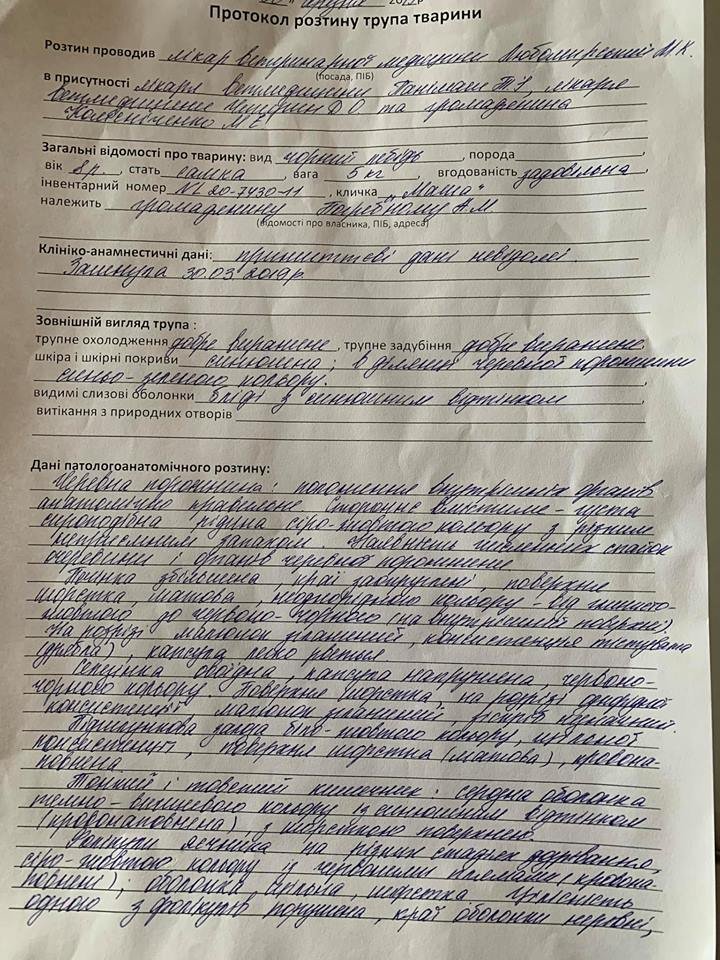 Протокол розтину трупа тварини
Розтин проводив лікар ветеринарної медицини Любомирський М.К.
(посада, ПІБ)
в присутності лікаря ветмедицини Т.І., лікаря
ветмедицини Д.О. та громадянина
М.Є.
Загальні відомості про тварину: вид чорний лебідь, порода
вік 8 р., стать самка, вага 5 кг, вгодованість задовільна,
інвентарний номер NL 20-7430-11, кличка „Маша"
належить громадянину Погребному А.М.
(відомості про власника, ПІБ, адреса)
Клініко-анамнестичні дані: прижиттєві дані невідомі.
Загинула 30.03.2019р.
Зовнішній вигляд трупа :
трупне охолодження добре виражене, трупне задубіння добре виражене
шкіра і шкірні покриви синюшна; в ділянці черевної порожнини
синьо-зеленого кольору.
видимі слизові оболонки бліді з синюшним відтінком
витікання з природних отворів
Дані патологоанатомічного розтину:
Черевна порожнина: положення внутрішніх органів
анатомічно правильне. Стороннє вмістиме - густа
сироподібна рідина сіро-жовтого кольору з різким
неприємним запахом. Наявність численних спайок
очеревини і органів черевної порожнини
Печінка збільшена, краї заокруглені, поверхня
шорстка, матова, неоднорідного кольору - від глинисто-
жовтого до червоно-чорного (на внутрішній поверхні).
На розрізі малюнок згладжений, консистенція тістувата
(дрябла), капсула легко рветься
Селезінка овоїдна, капсула напружена, червоно-
чорного кольору. Поверхня шорстка, на розрізі
консистенції, малюнок згладжений,
Підшлункова залоза біло-жовтого кольору, щільної
консистенції, поверхня шорстка (матова), кровона-
повнена
Тонкий і товстий кишечник: серозна оболонка
темно-вишневого кольору із синюшним відтінком
(кровонаповнена), з шорсткою поверхнею
Фолікули яєчника на різних стадіях дозрівання,
сіро-жовтого кольору із червоними плямами (кровона-
повнені); оболонка щільна, шорстка. Цілісність
одного з фолікулів порушена, краї оболонки нерівні,